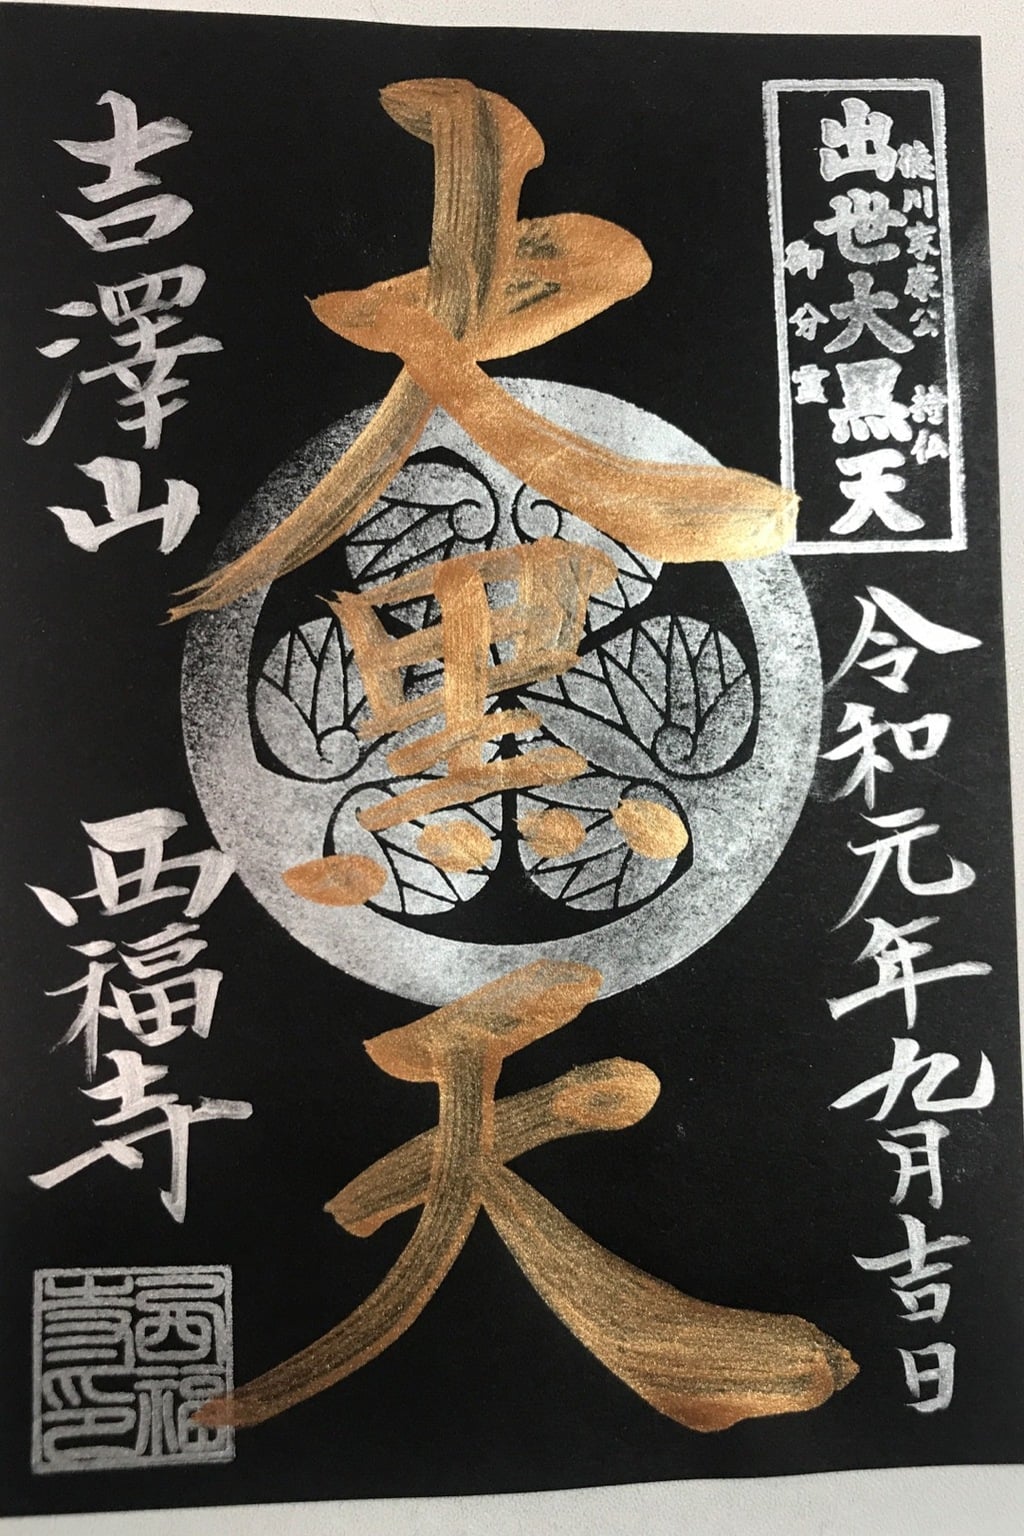 徳川家康公 持仏
出世大黒天
御分霊
令和元年九月吉日
大黒天
吉澤山 西福寺
西福寺印